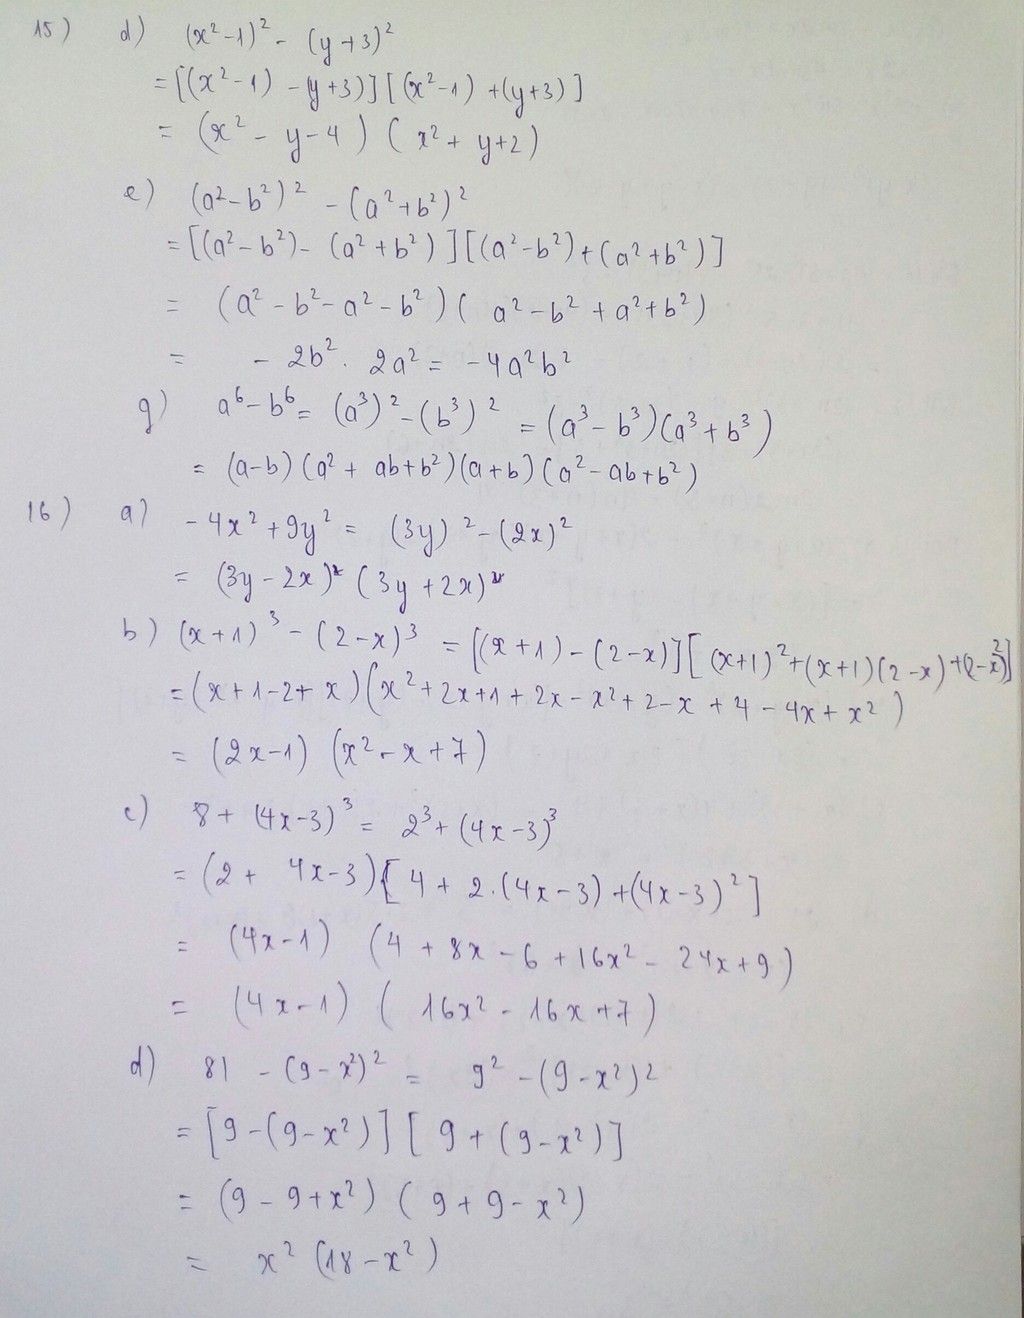 15) d) (x² - 1)² - (y + 3)²
= [(x² - 1) - (y + 3)] [(x² - 1) + (y + 3)]
= (x² - y - 4) (x² + y + 2)
e) (a² - b²)² - (a² + b²)²
= [(a² - b²) - (a² + b²)] [(a² - b²) + (a² + b²)]
= (a² - b² - a² - b²) (a² - b² + a² + b²)
= - 2b² . 2a² = - 4a²b²
g) a⁶ - b⁶ = (a³)² - (b³)² = (a³ - b³) (a³ + b³)
= (a - b) (a² + ab + b²) (a + b) (a² - ab + b²)
16) a) - 4x² + 9y² = (3y)² - (2x)²
= (3y - 2x) (3y + 2x)
b) (x + 1)³ - (2 - x)³ = [(x + 1) - (2 - x)] [(x + 1)² + (x + 1) (2 - x) + (2 - x)²]
= (x + 1 - 2 + x) (x² + 2x + 1 + 2x - x² + 2 - x + 4 - 4x + x²)
= (2x - 1) (x² - x + 7)
c) 8 + (4x - 3)³ = 2³ + (4x - 3)³
= (2 + 4x - 3) [4 + 2.(4x - 3) + (4x - 3)²]
= (4x - 1) (4 + 8x - 6 + 16x² - 24x + 9)
= (4x - 1) (16x² - 16x + 7)
d) 81 - (9 - x²)² = 9² - (9 - x²)²
= [9 - (9 - x²)] [9 + (9 - x²)]
= (9 - 9 + x²) (9 + 9 - x²)
= x² (18 - x²)